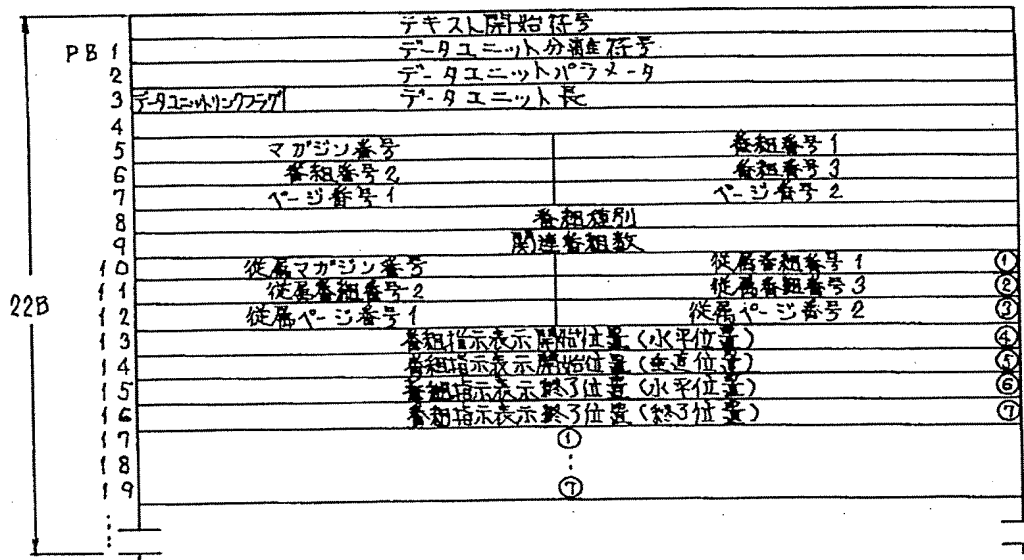 テキスト開始符号
PB 1 データユニット分離符号
2 データユニットパラメータ
3 データユニットリンクフラグ データユニット長
4
5 マガジン番号 番組番号1
6 番組番号2 番組番号3
7 ページ番号1 ページ番号2
8 番組種別
9 関連番組数
10 従属マガジン番号 従属番組番号1 ①
11 従属番組番号2 従属番組番号3 ②
12 従属ページ番号1 従属ページ番号2 ③
22B
13 番組指示表示開始位置(水平位置) ④
14 番組指示表示開始位置(垂直位置) ⑤
15 番組指示表示終了位置(水平位置) ⑥
16 番組指示表示終了位置(終了位置) ⑦
17 ①
18 ⋮
19 ⑦
⋮